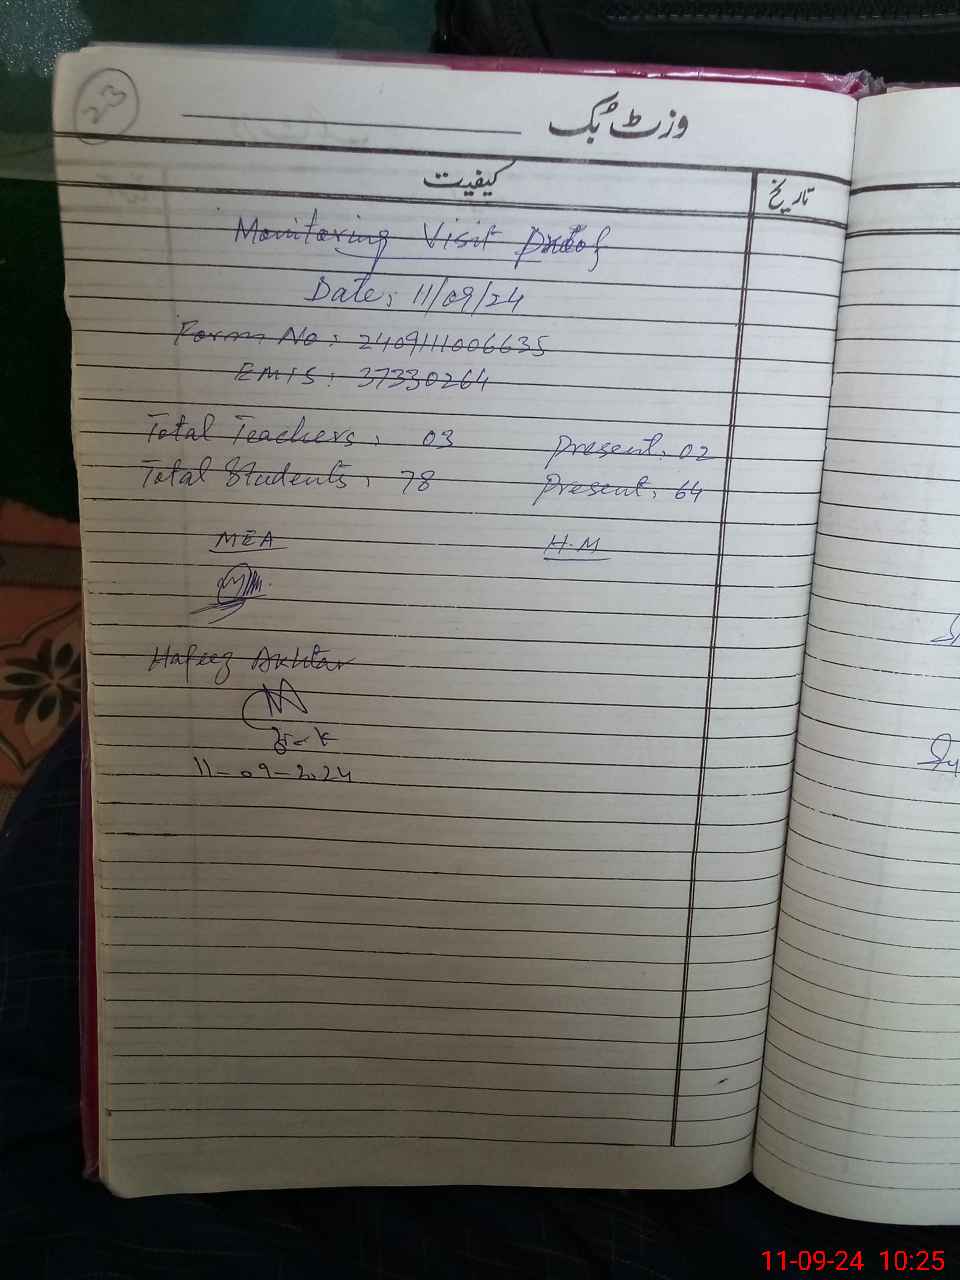 23
وزٹ بُک
کیفیت
تاریخ
Monitoring Visit Proof
Date: 11/09/24
Form No: 2409111006635
EMIS: 37330264
Total Teachers: 03 Present: 02
Total Students: 78 Present: 64
MEA H.M
Hafeez Akhtar
11-09-2024
11-09-24 10:25